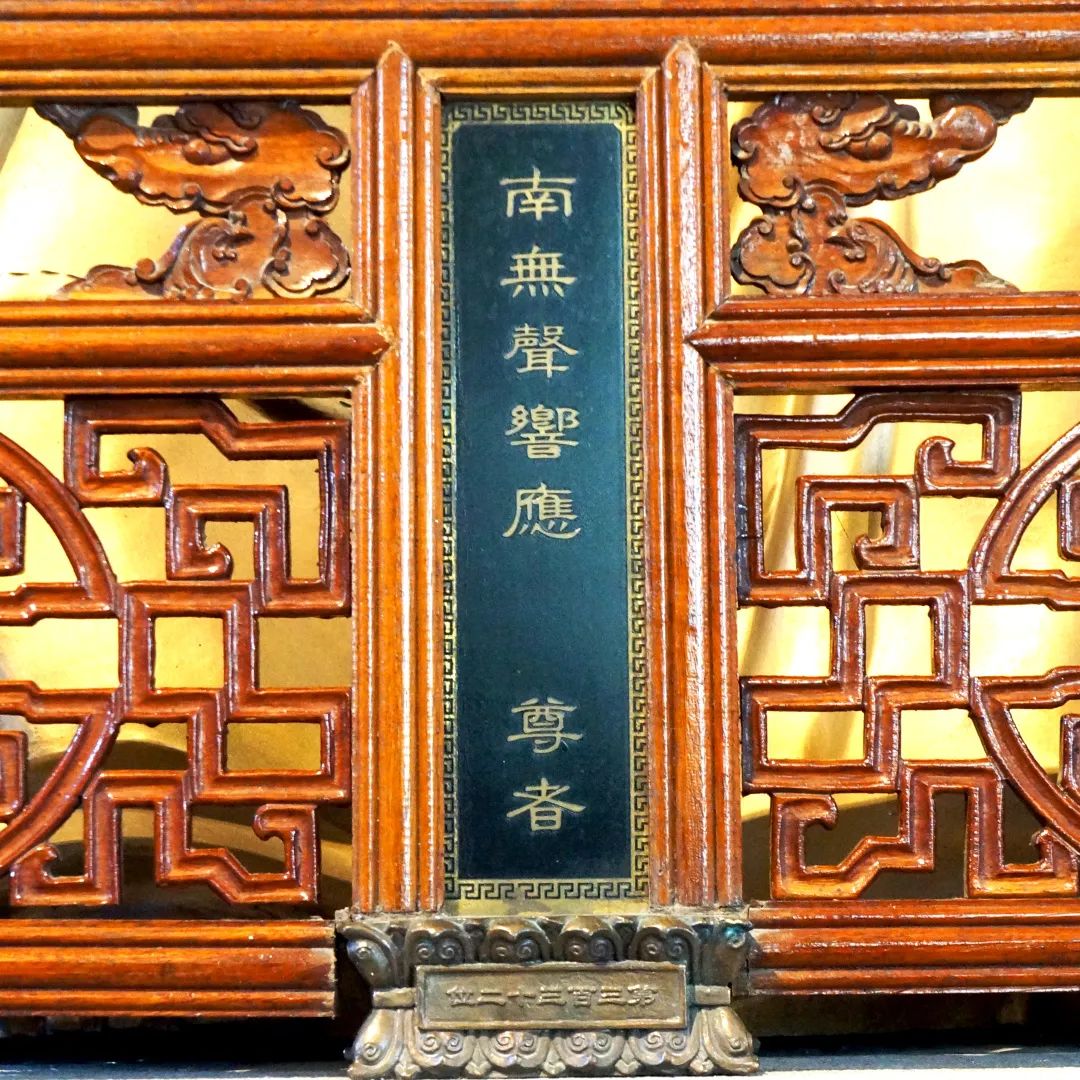 南無聲響應 尊者
第三百三十二位